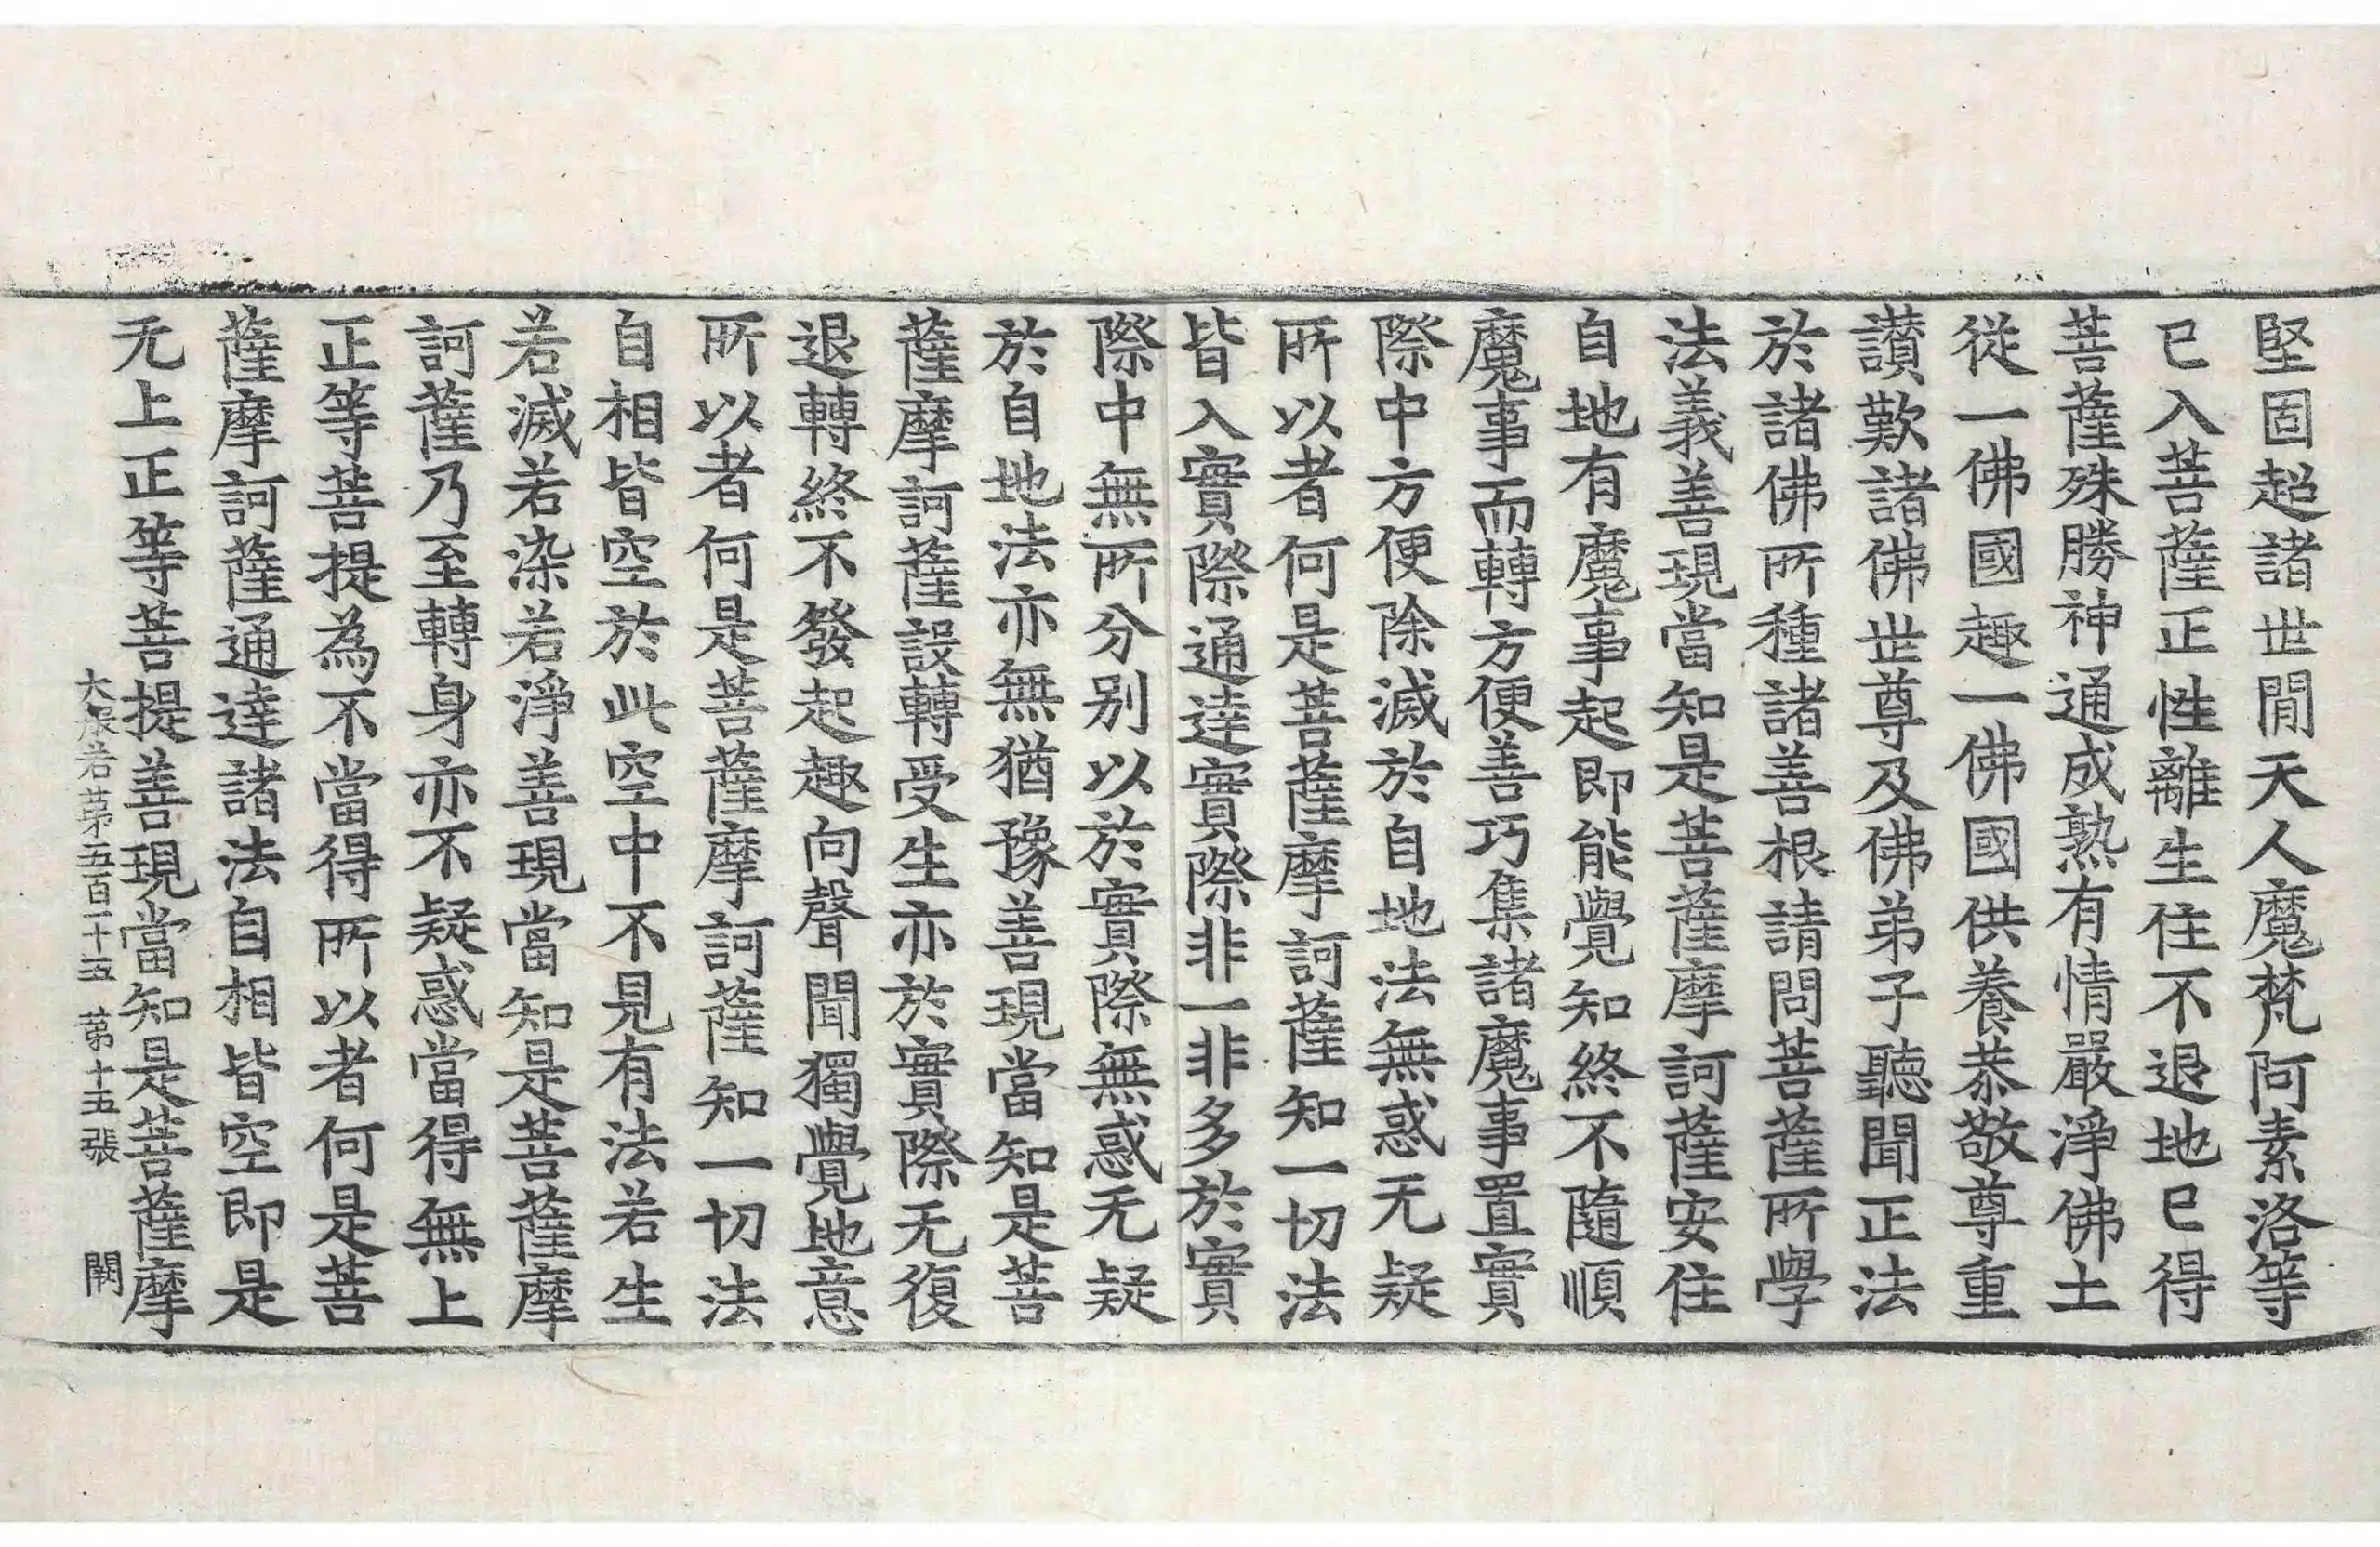 堅固超諸世閒天人魔梵阿素洛等
已入菩薩正性離生住不退地已得
菩薩殊勝神通成熟有情嚴淨佛土
從一佛國趣一佛國供養恭敬尊重
讃歎諸佛世尊及佛弟子聽聞正法
於諸佛所種諸善根請問菩薩所學
法義善現當知是菩薩摩訶薩安住
自地有魔事起即能覺知終不隨順
魔事而轉方便善巧集諸魔事置實
際中方便除滅於自地法無惑无疑
所以者何是菩薩摩訶薩知一切法
皆入實際通達實際非一非多於實
際中無所分别以於實際無惑无疑
於自地法亦無猶豫善現當知是菩
薩摩訶薩設轉受生亦於實際无復
退轉終不發起趣向聲聞獨覺地意
所以者何是菩薩摩訶薩知一切法
自相皆空於此空中不見有法若生
若滅若染若淨善現當知是菩薩摩
訶薩乃至轉身亦不疑惑當得無上
正等菩提為不當得所以者何是菩
薩摩訶薩通達諸法自相皆空即是
无上正等菩提善現當知是菩薩摩
大般若第五百一十五 第十五張 闕